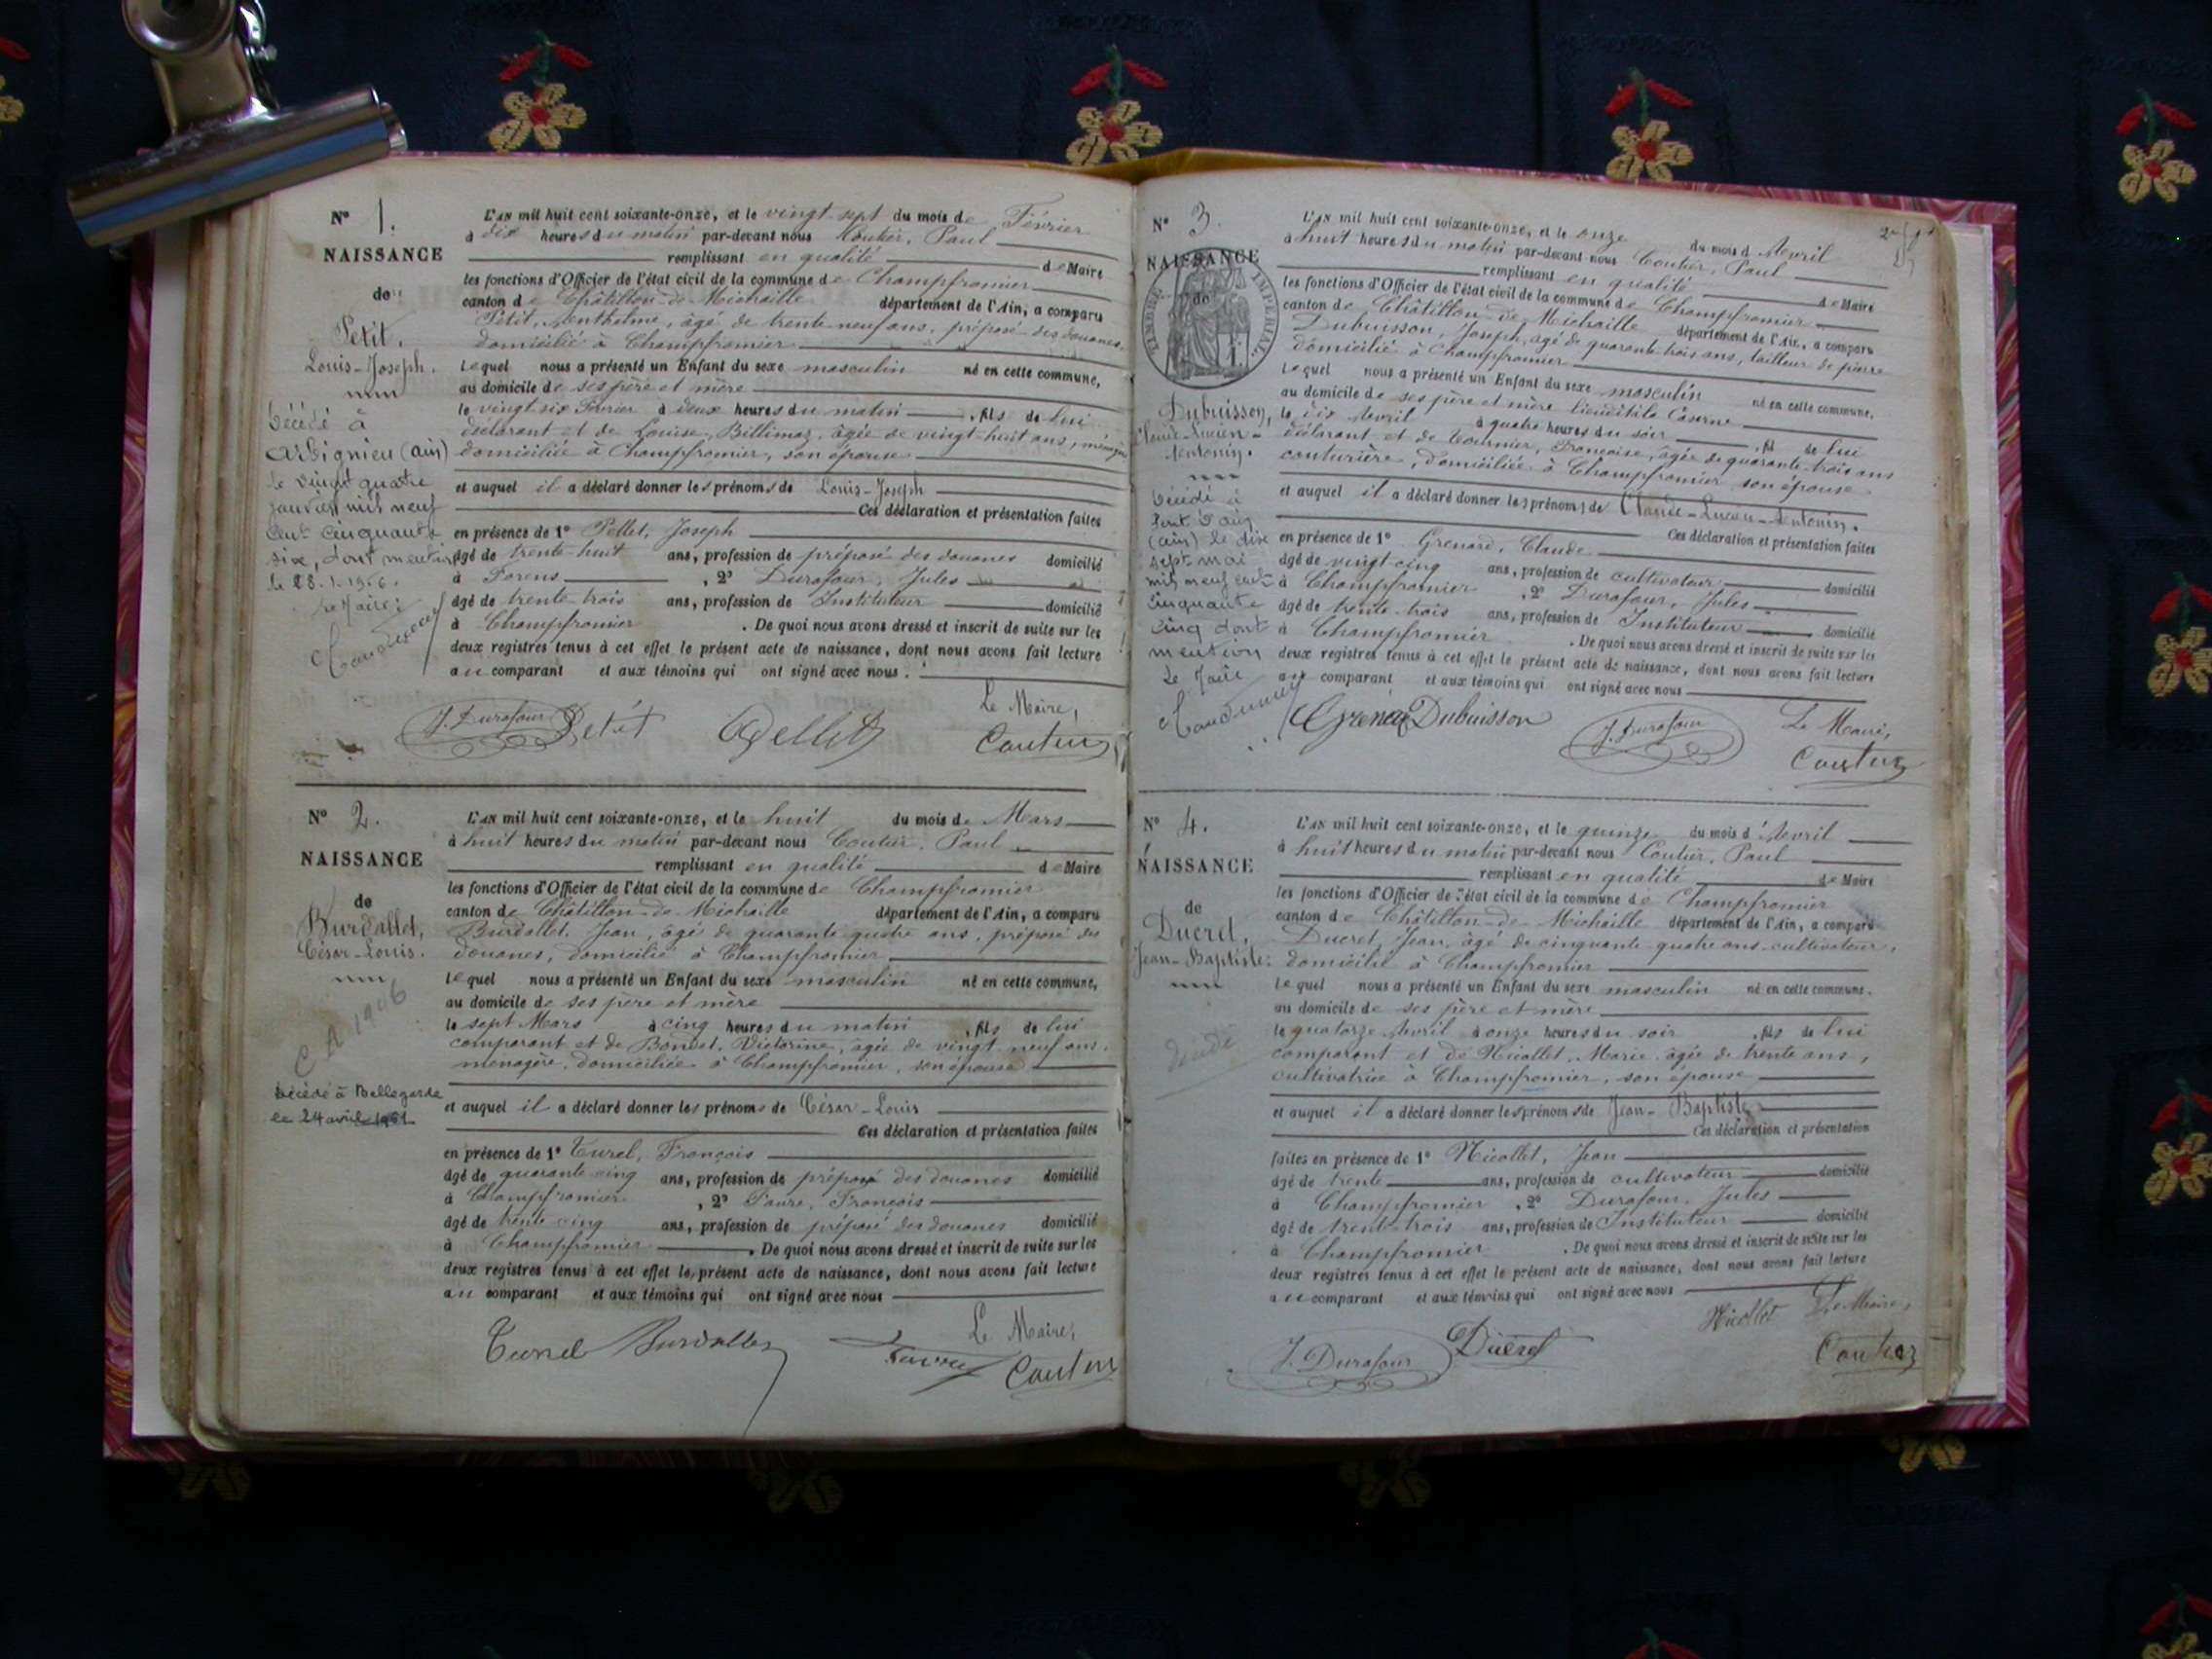 N° 1.
NAISSANCE
de
Petit,
Louis-Joseph.
Décédé à
Arbignieu (ain)
le vingt quatre
janvier mil neuf
cent cinquante
six, dont mention
le 28.1.1956.
Le Maire:
L'AN mil huit cent soixante-onze, et le vingt-sept du mois de Février
à dix heures du matin par-devant nous Coutier, Paul
remplissant en qualité de Maire
les fonctions d'Officier de l'état civil de la commune de Champfromier
canton de Châtillon-de-Michaille département de l'Ain, a comparu
Petit, Anthelme, âgé de trente neuf ans, préposé des douanes,
domicilié à Champfromier
lequel nous a présenté un Enfant du sexe masculin né en cette commune,
au domicile de ses père et mère
le vingt-six Février à deux heures du matin, fils de lui
déclarant et de Louise, Billimaz, âgée de vingt-huit ans, ménagère
domiciliée à Champfromier, son épouse
et auquel il a déclaré donner les prénoms de Louis-Joseph
Ces déclaration et présentation faites
en présence de 1° Pellet, Joseph
âgé de trente-huit ans, profession de préposé des douanes domicilié
à Forens, 2° Durafour, Jules
âgé de trente-trois ans, profession de Instituteur domicilié
à Champfromier. De quoi nous avons dressé et inscrit de suite sur les
deux registres tenus à cet effet le présent acte de naissance, dont nous avons fait lecture
au comparant et aux témoins qui ont signé avec nous.
Le Maire,
J. Durafour Petit Pellet Coutier
N° 2.
NAISSANCE
de
Burdallet,
César-Louis.
C A 1946
Décédé à Bellegarde
le 24 avril 1961
L'AN mil huit cent soixante-onze, et le huit du mois de Mars
à huit heures du matin par-devant nous Coutier, Paul
remplissant en qualité de Maire
les fonctions d'Officier de l'état civil de la commune de Champfromier
canton de Châtillon-de-Michaille département de l'Ain, a comparu
Burdallet, Jean, âgé de quarante quatre ans, préposé des
douanes, domicilié à Champfromier
lequel nous a présenté un Enfant du sexe masculin né en cette commune,
au domicile de ses père et mère
le sept Mars à cinq heures du matin, fils de lui
comparant et de Bondet, Victorine, âgée de vingt-neuf ans,
ménagère, domiciliée à Champfromier, son épouse
et auquel il a déclaré donner les prénoms de César-Louis
Ces déclaration et présentation faites
en présence de 1° Turel, François
âgé de quarante-cinq ans, profession de préposé des douanes domicilié
à Champfromier, 2° Favre, François
âgé de trente-cinq ans, profession de préposé des douanes domicilié
à Champfromier. De quoi nous avons dressé et inscrit de suite sur les
deux registres tenus à cet effet le présent acte de naissance, dont nous avons fait lecture
au comparant et aux témoins qui ont signé avec nous
Le Maire,
Turel Burdallet Favre Coutier
N° 3.
NAISSANCE
de
TIMBRE IMPERIAL
Dubuisson,
Claude-Lucien-
Antonin.
Décédé à
Pont d'ain
(ain) le dix
sept mai
mil neuf cent
cinquante
cinq dont
mention
Le Maire
L'AN mil huit cent soixante-onze, et le onze du mois d'Avril
à huit heures du matin par-devant nous Coutier, Paul
remplissant en qualité de Maire
les fonctions d'Officier de l'état civil de la commune de Champfromier
canton de Châtillon-de-Michaille département de l'Ain, a comparu
Dubuisson, Joseph, âgé de quarante-trois ans, tailleur de pierre
domicilié à Champfromier
lequel nous a présenté un Enfant du sexe masculin né en cette commune,
au domicile de ses père et mère lieudit la Caserne
le dix Avril à quatre heures du soir, fils de lui
déclarant et de Tournier, Françoise, âgée de quarante-trois ans
couturière, domiciliée à Champfromier son épouse
et auquel il a déclaré donner les prénoms de Claude-Lucien-Antonin.
Ces déclaration et présentation faites
en présence de 1° Grenard, Claude
âgé de vingt-cinq ans, profession de cultivateur domicilié
à Champfromier, 2° Durafour, Jules
âgé de trente-trois ans, profession de Instituteur domicilié
à Champfromier. De quoi nous avons dressé et inscrit de suite sur les
deux registres tenus à cet effet le présent acte de naissance, dont nous avons fait lecture
au comparant et aux témoins qui ont signé avec nous
Le Maire,
Grenard Dubuisson J. Durafour Coutier
N° 4.
NAISSANCE
de
Ducret,
Jean-Baptiste.
décédé
L'AN mil huit cent soixante-onze, et le quinze du mois d'Avril
à huit heures du matin par-devant nous Coutier, Paul
remplissant en qualité de Maire
les fonctions d'Officier de l'état civil de la commune de Champfromier
canton de Châtillon-de-Michaille département de l'Ain, a comparu
Ducret, Jean, âgé de cinquante-quatre ans cultivateur,
domicilié à Champfromier
lequel nous a présenté un Enfant du sexe masculin né en cette commune.
au domicile de ses père et mère
le quatorze Avril à onze heures du soir, fils de lui
comparant et de Nicollet, Marie, âgée de trente ans,
cultivatrice à Champfromier, son épouse
et auquel il a déclaré donner les prénoms de Jean-Baptiste
Ces déclaration et présentation
faites en présence de 1° Nicollet, Jean
âgé de trente ans, profession de cultivateur domicilié
à Champfromier, 2° Durafour, Jules
âgé de trente-trois ans, profession de Instituteur domicilié
à Champfromier. De quoi nous avons dressé et inscrit de suite sur les
deux registres tenus à cet effet le présent acte de naissance, dont nous avons fait lecture
au comparant et aux témoins qui ont signé avec nous
Nicollet Le Maire,
J. Durafour Ducret Coutier